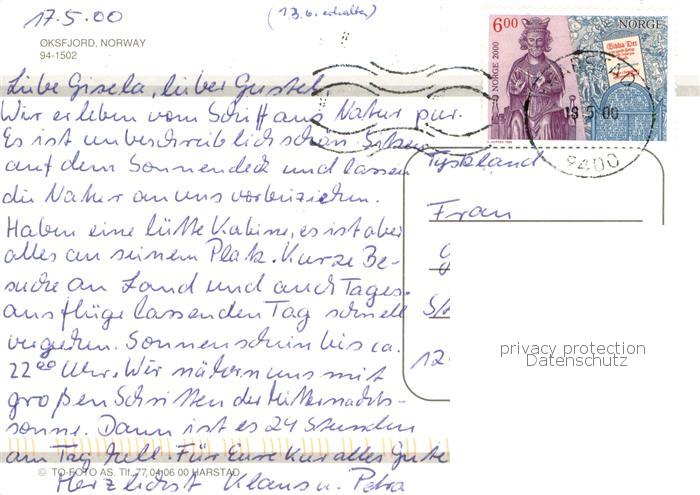 17.5.00
(1.3.6. erhalten)
ØKSFJORD, NORWAY
94-1502
6.00
NORGE
NORGE 2000
Biblia Det
18.5.00
9400
Liebe Gisela, lieber Gustel,
Wir erleben vom Schiff aus Natur pur.
Es ist unbeschreiblich schön. Sitzen
auf dem Sonnendeck und lassen
die Natur an uns vorbeiziehen.
Haben eine lütte Kabine, es ist aber
alles an seinem Platz. Kurze Be-
suche an Land und auch Tages-
ausflüge lassen den Tag schnell
vergehen. Sonnenschein bis ca.
22⁰⁰ Uhr. Wir nähern uns mit
großen Schritten der Mitternachts-
sonne. Dann ist es 24 Stunden
am Tag hell. Für Eure Kur alles Gute
Herzlichst Klaus u. Petra
Tyskland
Frau
12
privacy protection
Datenschutz
© TO-FOTO AS. Tlf. 77 04 06 00 HARSTAD